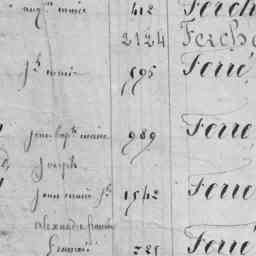 aug.te marie 412 Ferch
2124 Ferche
Jh marie 595 Ferré,
jean bapte marie 989 Ferré
Joseph
jean marie fs 1542 Ferré
alexandre francois
325 Ferré